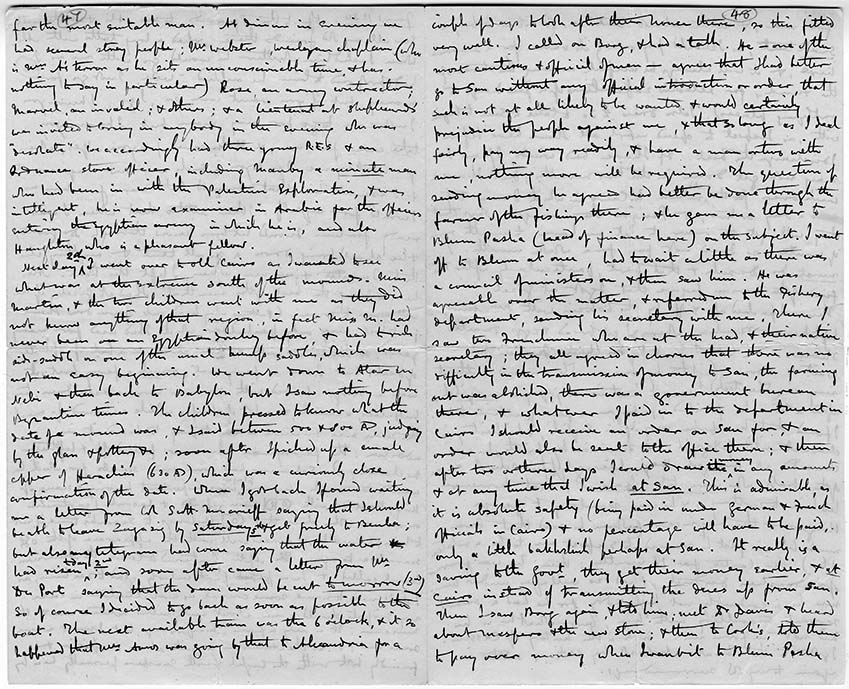 47
for the most suitable man. At dinner in evening we
had several stray people; Mr Webster, wesleyan chaplain (who
is Mrs as he sits an unconscionable time, & has
nothing to say in particular) Rose, an army contractor;
an invalid; & others; & a lieutenant at
was invited to bring in anybody in the evening who was
"desolate". So accordingly had three young R.E.s & an
Ordnance store officer, including a man
who had been in with the Palestine Exploration, & was
intelligent, he is now examiner in Arabic for the officers
entering the Egyptian army in which he is, and also
Haughton, who is a pleasant fellow.
Next day 2nd I went over to old Cairo as I wanted to see
what was at the extreme south of the mounds. Miss
& the two children went with me as they did
not know anything of that region, in fact Miss M. had
never been on an Egyptian donkey before, & had to ride
side-saddle on one of the usual saddles, which was
not an easy beginning. We went down to Atar en
Nebi & then back to Babylon but I saw nothing before
Byzantine times. The children pressed to know what the
date of a mound was, & I said between 500 & 800 AD, judging
by the glass & pottery &c; soon after I picked up a small
copper of Heraclius (630 AD), which was a curiously close
confirmation of the date. When I got back I found waiting
me a letter from Col Scott Moncrieff saying that I should
be able to leave Zagazig by Saturday & get freely to Benha;
but also my telegram had come saying that the water
had risen today 2nd; and soon after came a letter from Mr
Du Port saying that the dam would be cut tomorrow (3rd)
So of course I decided to go back as soon as possible to the
boat. The next available train was the 6 o'clock, & it so
happened that Mrs Amos was going by that to Alexandria for a
48
couple of days to look after their house there, so this fitted
very well. I called on Borg, & had a talk. He – one of the
most cautious & official of men – agrees that I had better
go to San without any official introduction or order, that
such is not at all likely to be wanted, & would certainly
prejudice the people against me, & that so long as I deal
fairly, pay my way readily, & have a man or two with
me, nothing more will be required. The question of
sending money he agreed had better be done through the
farmer of the fishings there; & he gave me a letter to
Blum Pasha (head of finance here) on the subject. I went
off to Blum at once had to wait a little as there was
a council of ministers on, & then saw him. He was
agreeable over the matter, & referred me to the Fishery
department, sending his secretary with me, there I
saw two Frenchmen who are at the head, & their native
secretary; they all agreed in chorus that there was no
difficulty in the transmission of money to San, the farming
out was abolished, there was a government bureau
there, & whatever I paid in to the department in
Cairo I should receive an order on San for, & an
order would also be sent to the office there; & then
after two or three days I could draw in any amount
& at any time that I wish at San. This is admirable, as
it is absolute safety (being paid in under German & French
officials in Cairo) & no percentage will have to be paid,
only a little bakhshish perhaps at San. It really is a
saving to the Govt, they get their money earlier, & at
Cairo instead of transmitting the dues up from San.
Then I saw Borg again, & told him, met Dr Davis & heard
about Maspero & the new store; & then to Cook's, told them
to pay over money when I wrote it to Blum Pasha